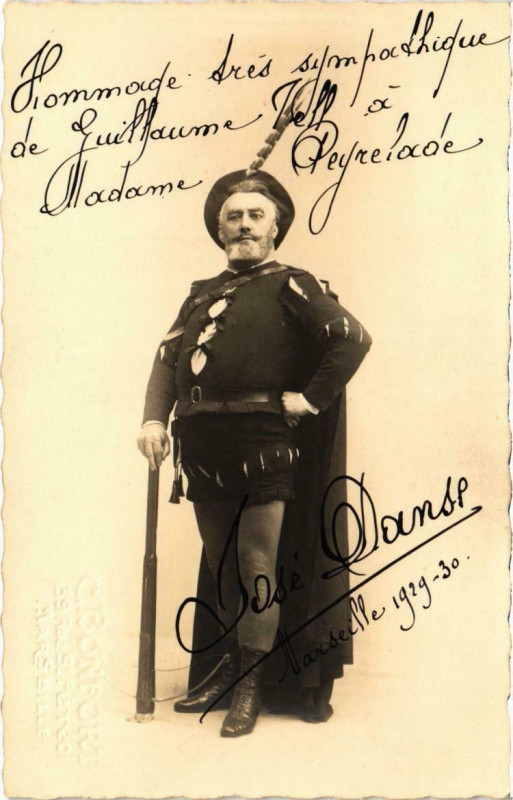 Hommage très sympathique
de Guillaume Tell à
Madame Peyrelade
José Danse
Marseille 1929-30.
G. BONFORT
MARSEILLE